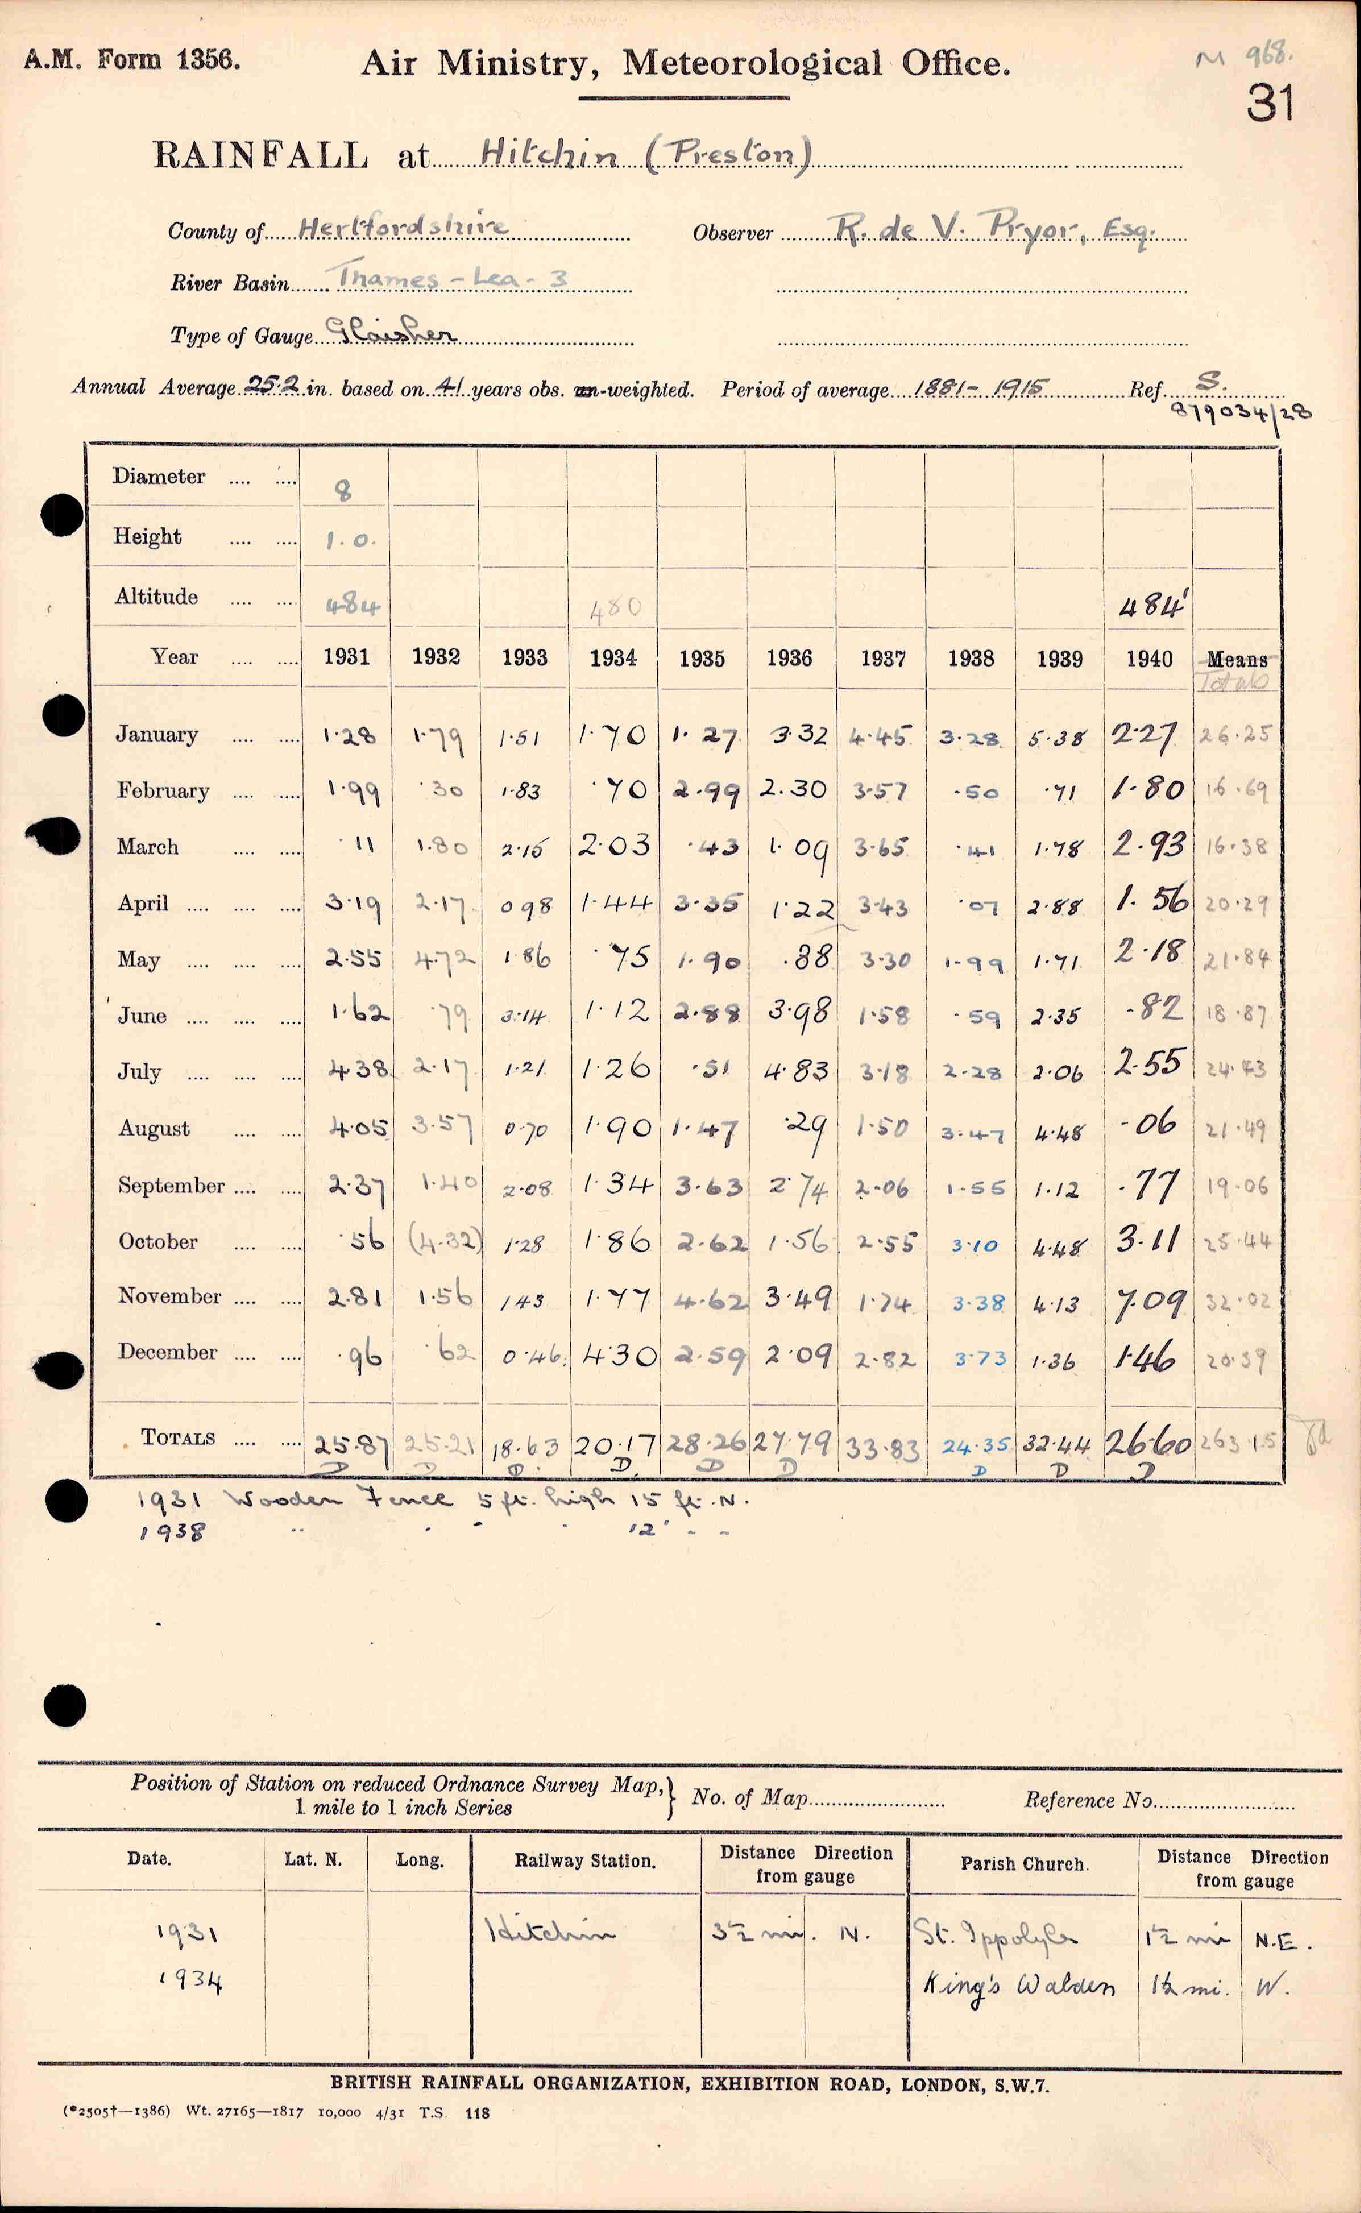 A.M. Form 1356. Air Ministry, Meteorological Office. M 968.
31
RAINFALL at Hitchin (Preston)
County of Hertfordshire Observer R. de V. Pryor, Esq.
River Basin Thames - Lea - 3
Type of Gauge Glaisher
Annual Average 25.2 in. based on 41 years obs. un-weighted. Period of average 1881 - 1915 Ref. S.
879034/28
Diameter 8
Height 1.0.
Altitude 484 480 484'
Year 1931 1932 1933 1934 1935 1936 1937 1938 1939 1940 Means
Totals
January 1.28 1.79 1.51 1.70 1.27 3.32 4.45 3.28 5.38 2.27 26.25
February 1.99 .30 1.83 .70 2.99 2.30 3.57 .50 .71 1.80 16.69
March .11 1.80 2.15 2.03 .43 1.09 3.65 .41 1.78 2.93 16.38
April 3.19 2.17 0.98 1.44 3.35 1.22 3.43 .07 2.88 1.56 20.29
May 2.55 4.72 1.86 .75 1.90 .88 3.30 1.99 1.71 2.18 21.84
June 1.62 .79 3.14 1.12 2.88 3.98 1.58 .59 2.35 .82 18.87
July 4.38 2.17 1.21 1.26 .51 4.83 3.18 2.28 2.06 2.55 24.43
August 4.05 3.57 0.70 1.90 1.47 .29 1.50 3.47 4.48 .06 21.49
September 2.37 1.40 2.08 1.34 3.63 2.74 2.06 1.55 1.12 .77 19.06
October .56 (4.32) 1.28 1.86 2.62 1.56 2.55 3.10 4.48 3.11 25.44
November 2.81 1.56 1.43 1.77 4.62 3.49 1.74 3.38 4.13 7.09 32.02
December .96 .62 0.46 4.30 2.59 2.09 2.82 3.73 1.36 1.46 20.39
TOTALS 25.87 25.21 18.63 20.17 28.26 27.79 33.83 24.35 32.44 26.60 263.15
D D D. D. D D D D D
1931 Wooden Fence 5 ft. high 15 ft. N.
1938 " " " " 12' " "
Position of Station on reduced Ordnance Survey Map, } No. of Map Reference No.
1 mile to 1 inch Series
Date. Lat. N. Long. Railway Station. Distance Direction from gauge Parish Church. Distance Direction from gauge
1931 Hitchin 3½ mi. N. St. Ippolyts 1½ mi N.E.
1934 King's Walden 1½ mi. W.
BRITISH RAINFALL ORGANIZATION, EXHIBITION ROAD, LONDON, S.W.7.
(*2505†—1386) Wt. 27165—1817 10,000 4/31 T.S. 118